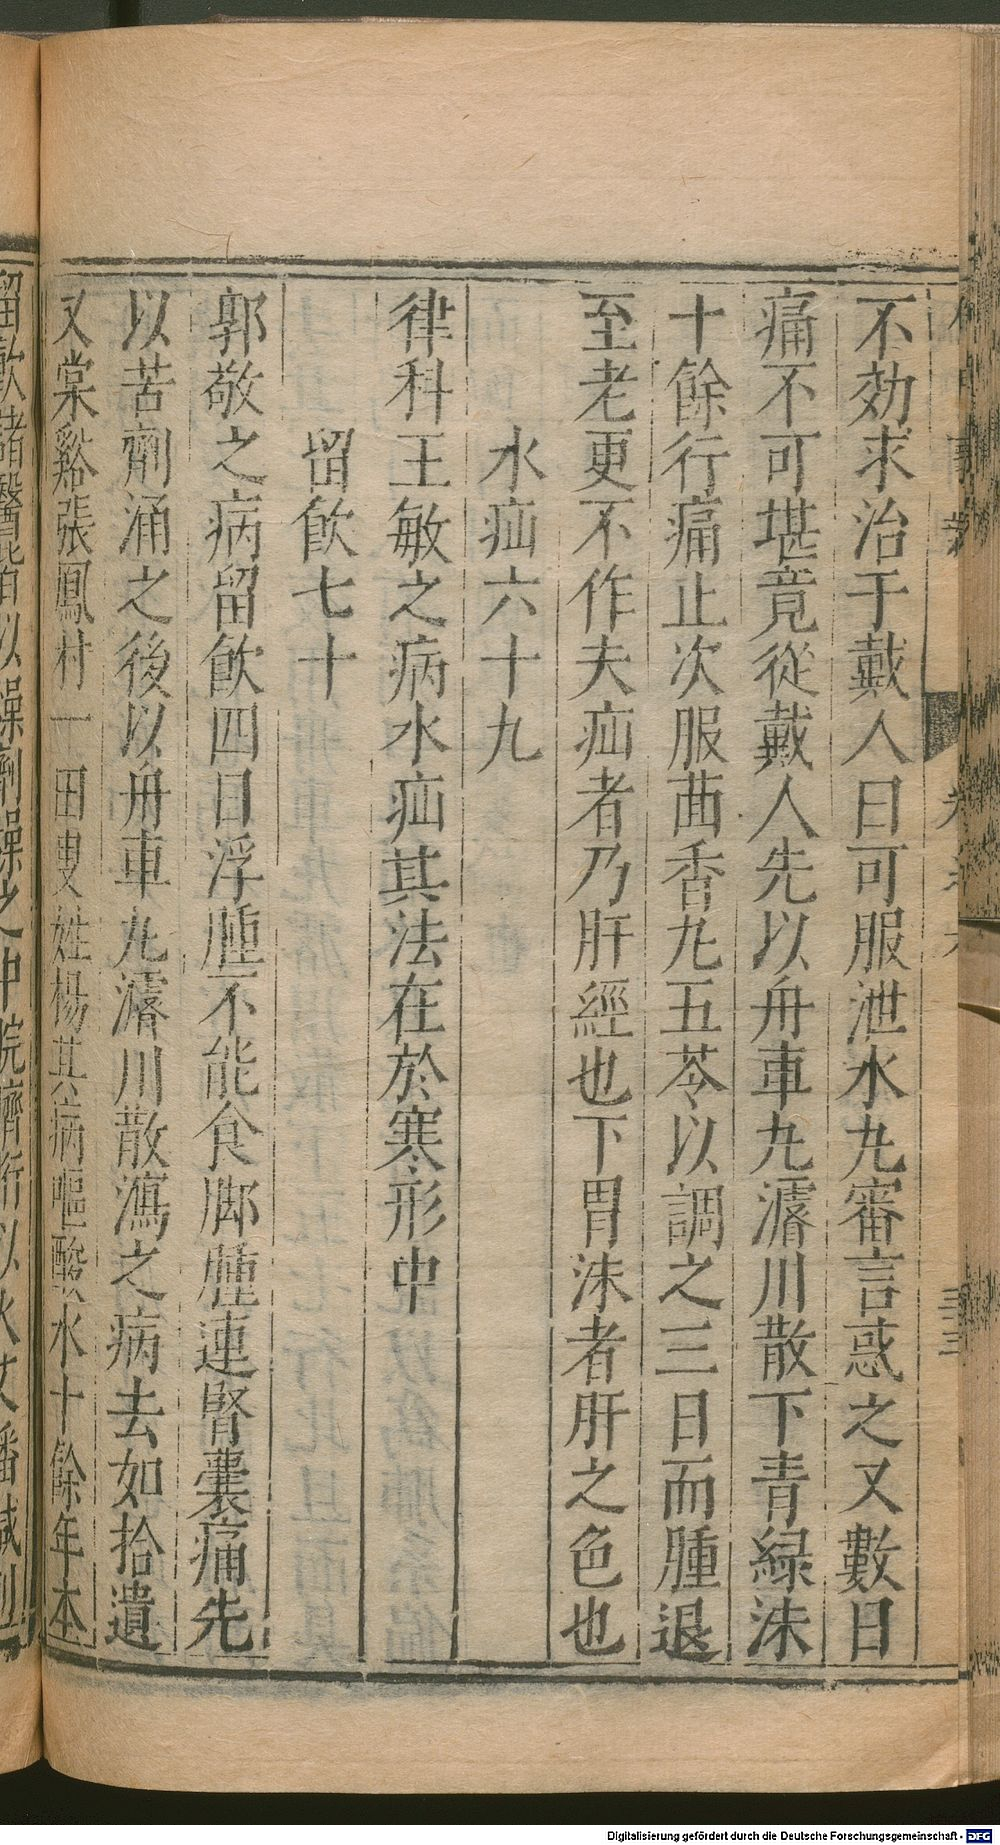 不効求治于戴人曰可服泄水丸審言惑之又數日
痛不可堪竟從戴人先以舟車丸濬川散下青緑沫
十餘行痛止次服茴香丸五苓以調之三日而腫退
至老更不作夫疝者乃肝經也下胃沫者肝之色也
水疝六十九
律科王敏之病水疝其法在於寒形中
留飲七十
郭敬之病留飲四日浮腫不能食脚腫連腎囊痛先
以苦劑涌之後以舟車丸濬川散瀉之病去如拾遺
又棠谿張鳳村一田叟姓楊其病嘔酸水十餘年本
留飲諸醫皆以燥劑燥之中脘臍
Digitalisierung gefördert durch die Deutsche Forschungsgemeinschaft - DFG